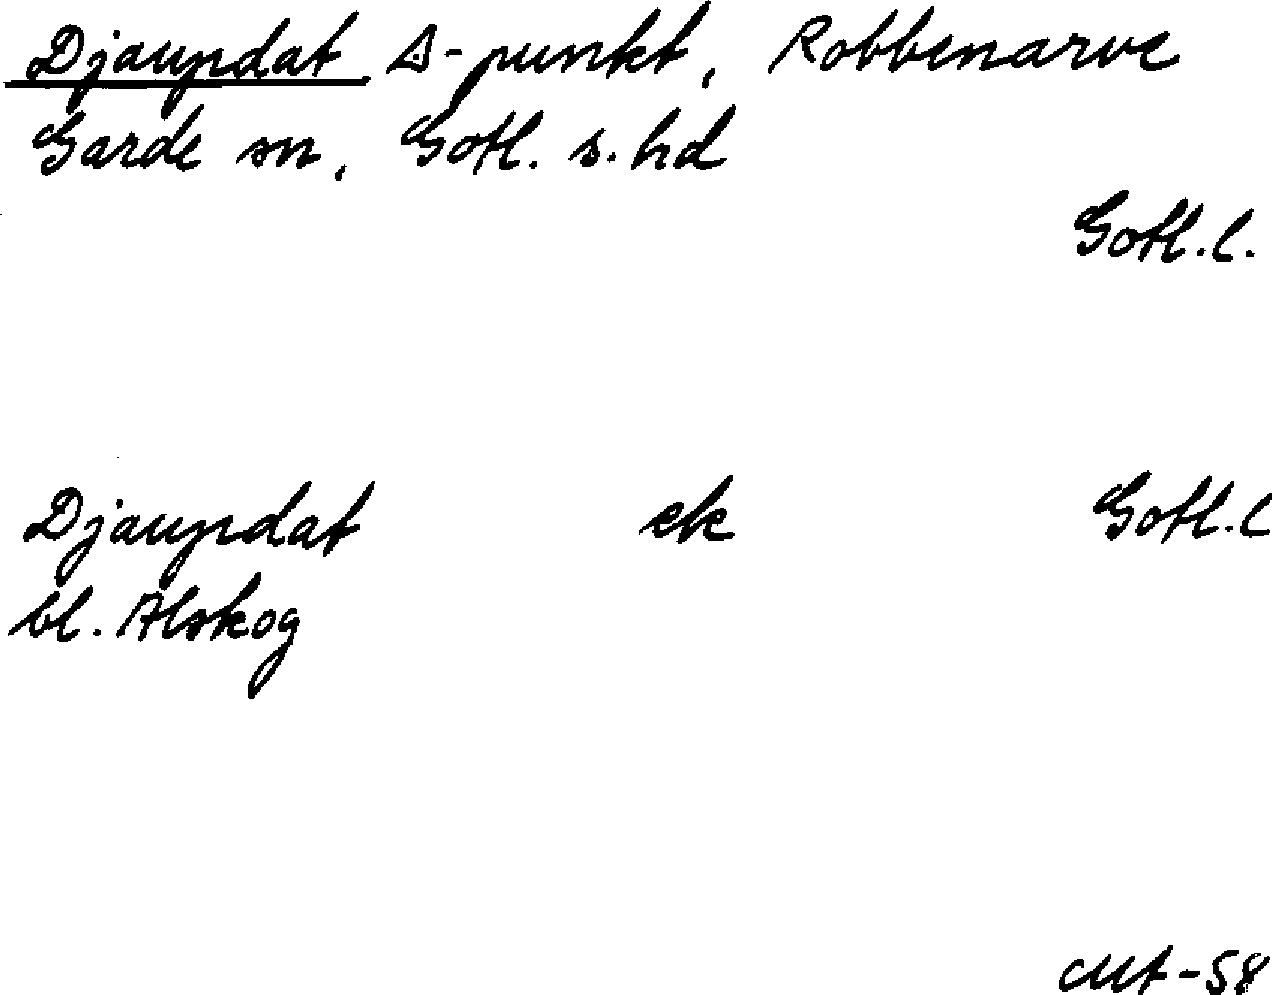 Djaupdat Δ-punkt, Robbenarve
Garde sn, Gotl. s. hd
Gotl. l.
Djaupdat ek Gotl. l
bl. Alskog
-58